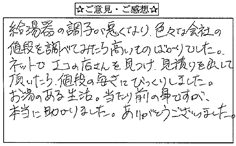 ☆ご意見・ご感想☆
給湯器の調子が悪くなり、色々な会社の
値段を調べてみたら高いものばかりでした。
ネットでココの店さんを見つけ、見積りを出して
頂いたら、値段の安さにびっくりしました。
お湯のある生活。当たり前の事ですが、
本当に助かりました。ありがとうございました。